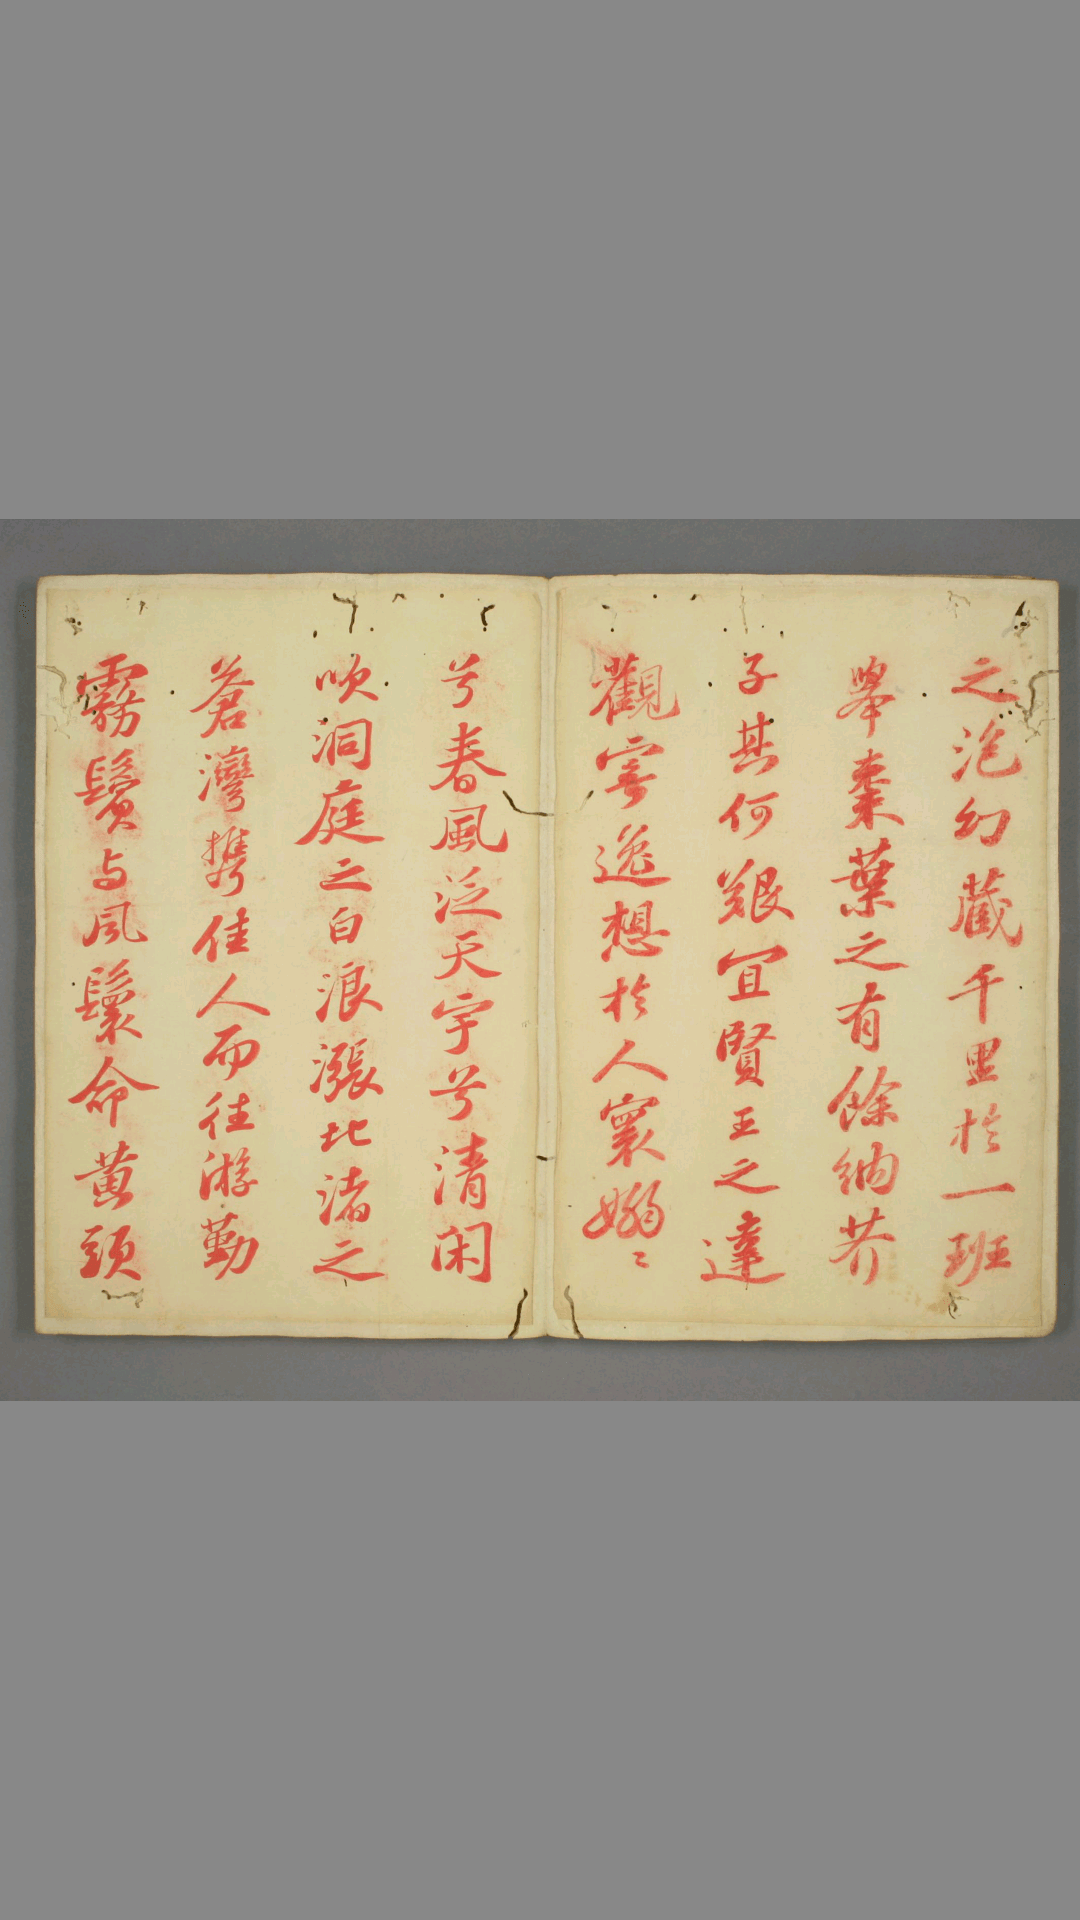 之泡幻藏千里於一班
舉棗葉之有餘納芥
子其何艱宜賢王之達
觀寄逸想於人寰嫋〻
兮春風泛天宇兮清闲
吹洞庭之白浪漲北渚之
蒼灣携佳人而往游勤
霧鬢与風鬟命黄頭